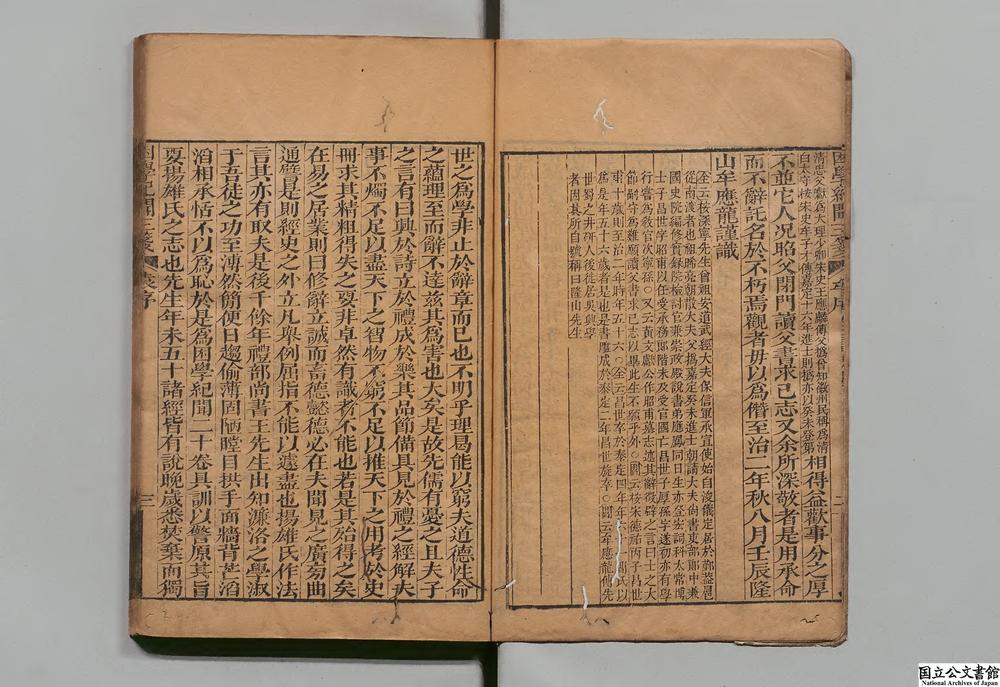 困學紀聞三箋 牟序 二
清忠父獻為大理少卿宋史王應麟傳父撝曾知徽州民稱為清
白太守按宋史牟子才傳嘉定十六年進士則撝亦以癸未登第
相得益歡事分之厚
不並它人况昭父閉門讀父書求己志又余所深敬者是用承命
而不辭託名於不朽焉觀者毋以為僭至治二年秋八月壬辰隆
山牟應龍謹識
全云按深寧先生曾祖安道武經大夫保信軍承宣使始自浚儀定居於鄞蓋扈
從南渡者也祖晞亮朝散大夫父撝嘉定癸未進士朝請大夫尚書吏部郎中兼
國史院編修實錄院檢討官兼崇政殿說書弟應鳳同日生亦登宏詞科太常博
士子昌世字昭甫以任受承務郎階未及受官國亡昌世子厚孫字遂初亦有學
行嘗為教官次寧孫○又云黃文獻公作昭甫墓志述其辭徵辟之言曰士之大
節嗣守為難願讀父書求己志以畢此生不願乎外○閻云按丙子昌世
甫十歲則至治二年時年五十六○全云昌世卒於泰定四年年閻氏以
為是年五十六歲者是也是書雕成於泰定二年昌世旋卒○閻云牟應龍傳先
世蜀之井研人後徙居吳興學
者因其所自號稱曰隆山先生
世之為學非止於辭章而已也不明乎理曷能以窮夫道德性命
之蘊理至而辭不達茲其為害也大矣是故先儒有憂之且夫子
之言有曰興於詩立於禮成於樂其品節備具見於禮之經解夫
事不燭不足以盡天下之智物不窮不足以推天下之用考於史
冊求其精粗得失之要非卓然有識者不能也若是其殆得之矣
在易之居業則曰修辭立誠而畜德懿德必在夫聞見之廣旁曲
通譬是則經史之外立凡舉例屈指不能以遽盡也揚雄氏作法
言其亦有取夫是後千餘年禮部尚書王先生出知濂洛之學淑
于吾徒之功至溥然簡便日趨偷薄固陋瞠目拱手面牆背芒滔
滔相承恬不以為恥於是為困學紀聞二十卷具訓以警原其旨
要揚雄氏之志也先生年未五十諸經皆有說晚歲悉焚棄而獨
困學紀聞三箋 袁序 三
国立公文書館
National Archives of Japan